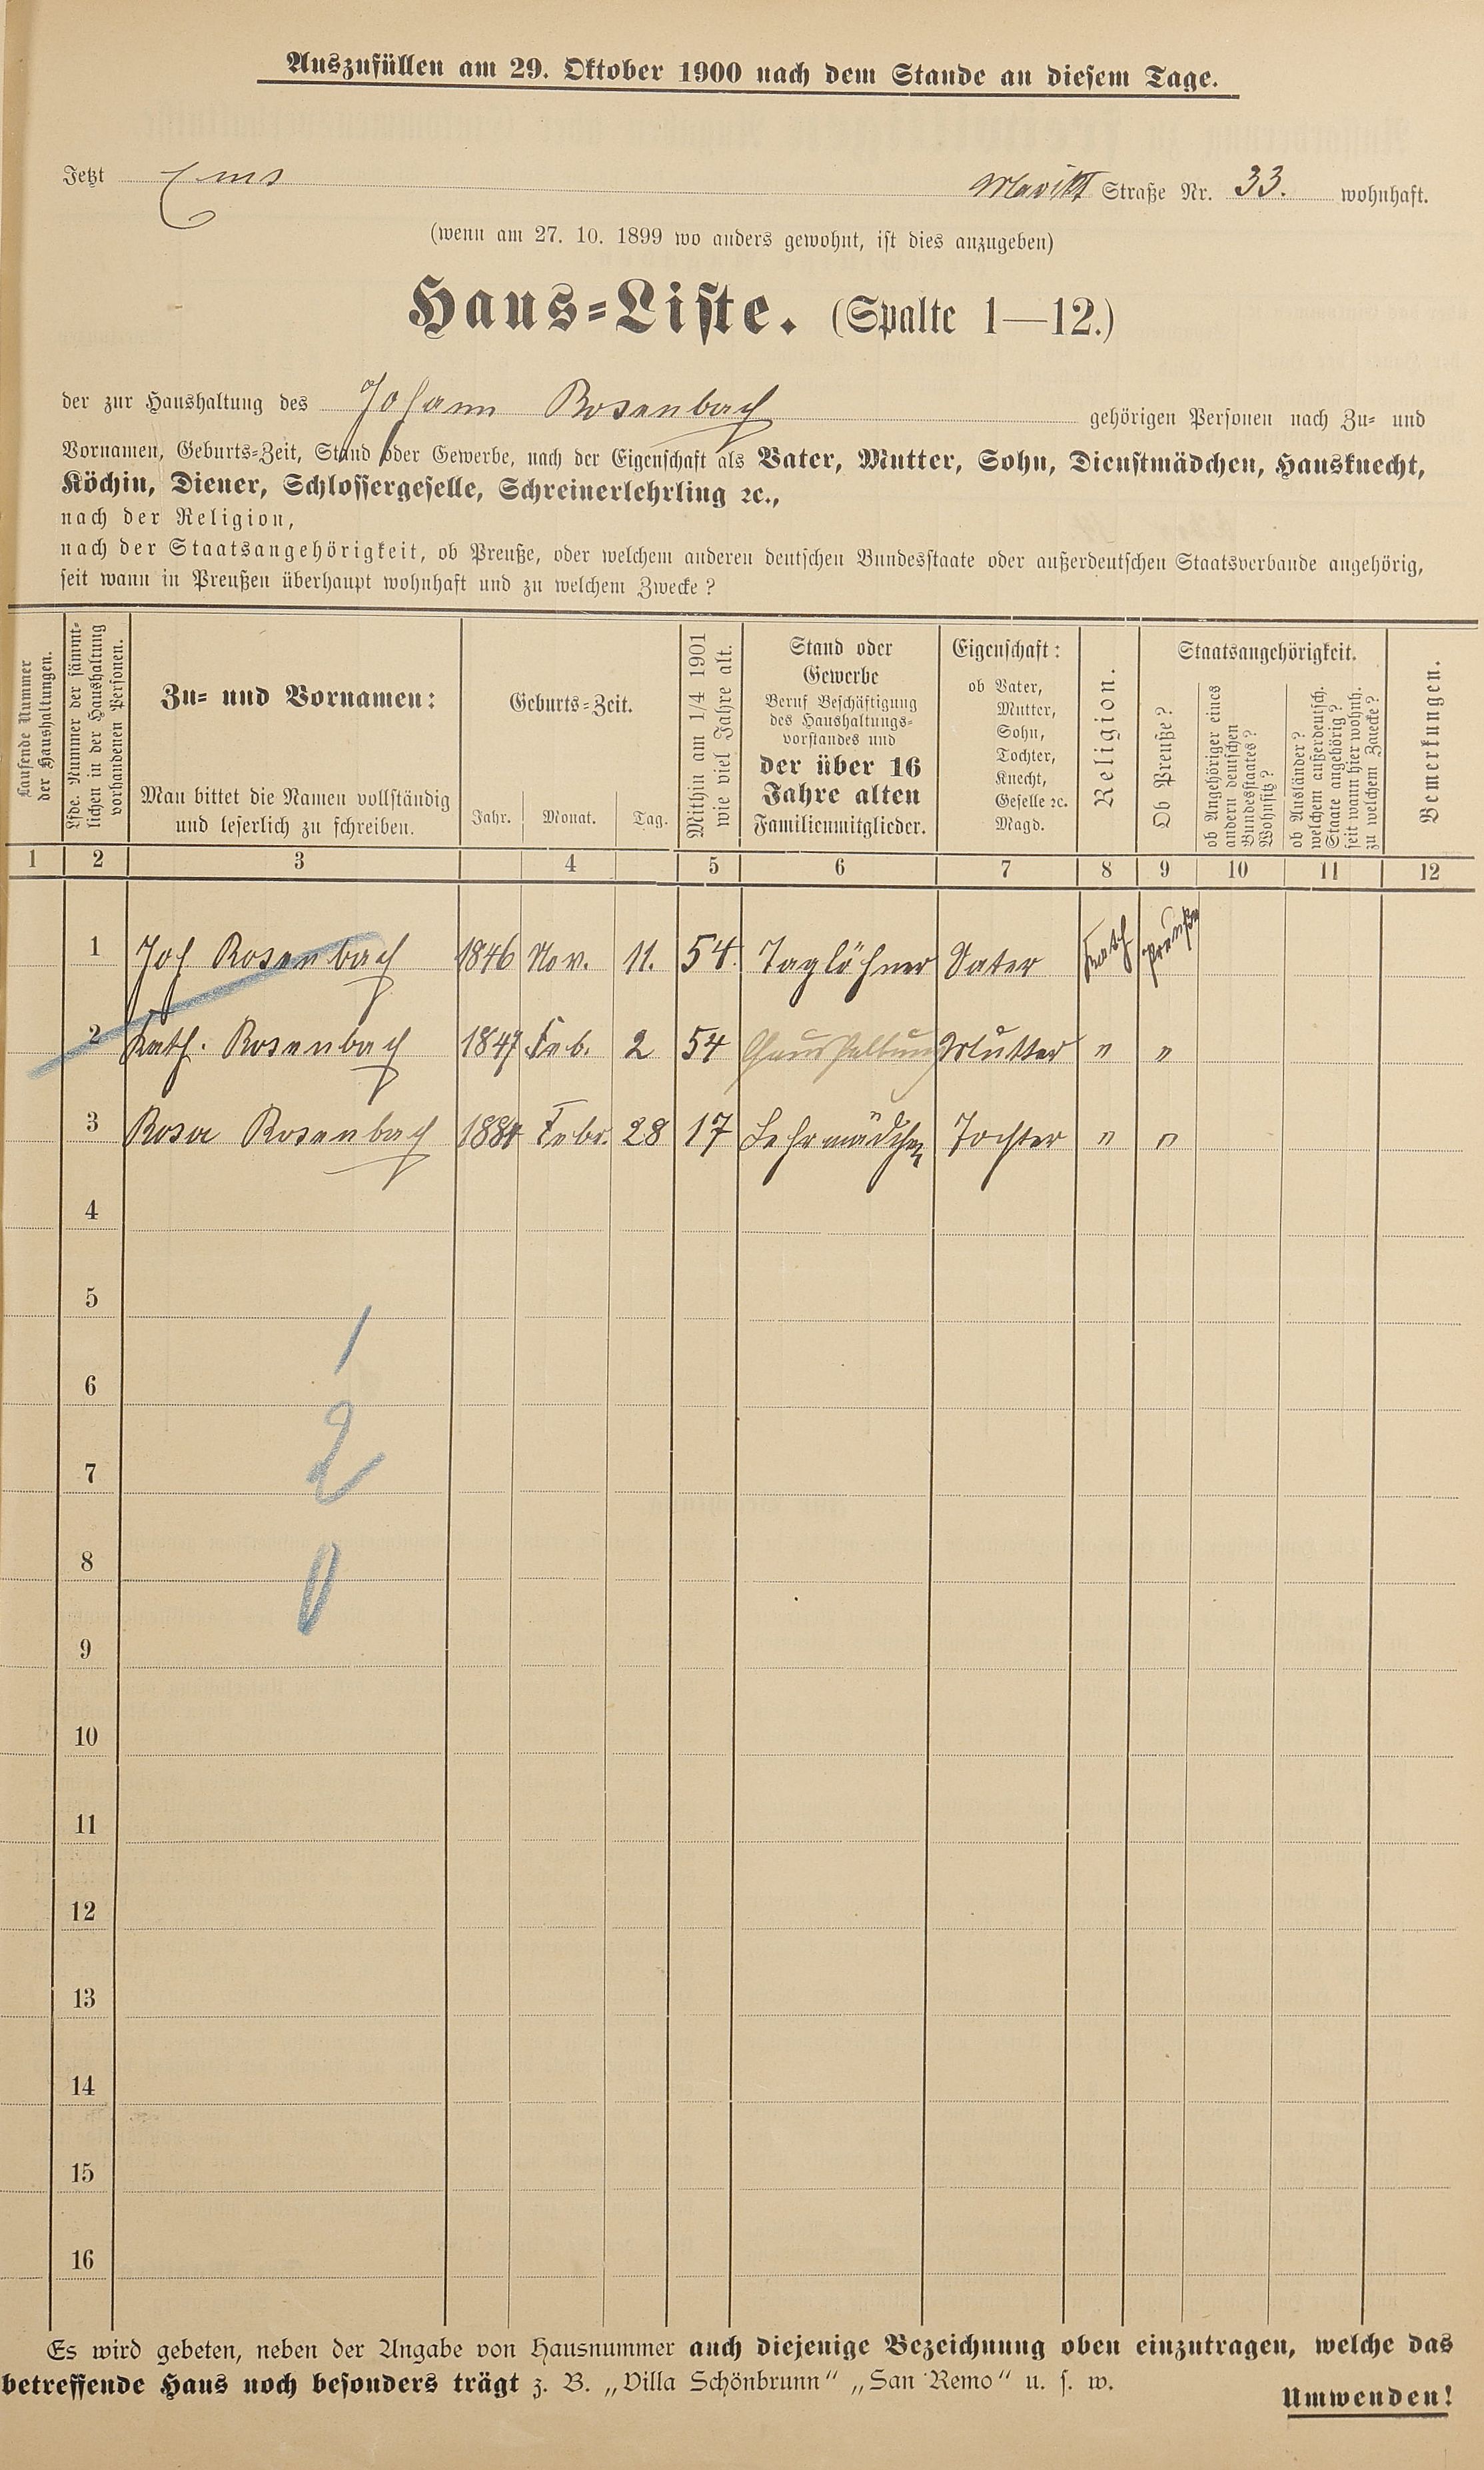 Auszufüllen am 29. Oktober 1900 nach dem Stande an diesem Tage.
Jetzt Ems Markt Straße Nr. 33. wohnhaft.
(wenn am 27. 10. 1899 wo anders gewohnt, ist dies anzugeben)
Haus-Liste. (Spalte 1—12.)
der zur Haushaltung des Johann Rosenbach gehörigen Personen nach Zu- und
Vornamen, Geburts-Zeit, Stand oder Gewerbe, nach der Eigenschaft als Vater, Mutter, Sohn, Dienstmädchen, Hausknecht,
Köchin, Diener, Schlossergeselle, Schreinerlehrling ꝛc.,
nach der Religion,
nach der Staatsangehörigkeit, ob Preuße, oder welchem anderen deutschen Bundesstaate oder außerdeutschen Staatsverbande angehörig,
seit wann in Preußen überhaupt wohnhaft und zu welchem Zwecke?
Laufende Nummer
der Haushaltungen.
Lfde. Nummer der sämmt-
lichen in der Haushaltung
vorhandenen Personen.
Zu- und Vornamen:
Man bittet die Namen vollständig
und leserlich zu schreiben.
Geburts-Zeit.
Jahr. Monat. Tag.
Mithin am 1/4 1901
wie viel Jahre alt.
Stand oder
Gewerbe
Beruf Beschäftigung
des Haushaltungs-
vorstandes und
der über 16
Jahre alten
Familienmitglieder.
Eigenschaft:
ob Vater,
Mutter,
Sohn,
Tochter,
Knecht,
Geselle ꝛc.
Magd.
Religion.
Staatsangehörigkeit.
Ob Preuße?
ob Angehöriger eines
andern deutschen
Bundesstaates?
Wohnsitz?
ob Ausländer?
welchem außerdeutsch.
Staate angehörig?
seit wann hier wohnh.
zu welchem Zwecke?
Bemerkungen.
1 2 3 4 5 6 7 8 9 10 11 12
1 Joh Rosenbach 1846 Nov. 11. 54. Taglöhner Vater Kath Preuße
2 Kath. Rosenbach 1847 Feb. 2 54 Haushaltung Mutter " "
3 Rosa Rosenbach 1884 Febr. 28 17 Lehrmädchen Tochter " "
4
5
1
6
2
7
8
0
9
10
11
12
13
14
15
16
Es wird gebeten, neben der Angabe von Hausnummer auch diejenige Bezeichnung oben einzutragen, welche das
betreffende Haus noch besonders trägt z. B. „Villa Schönbrunn“ „San Remo“ u. s. w.
Umwenden!